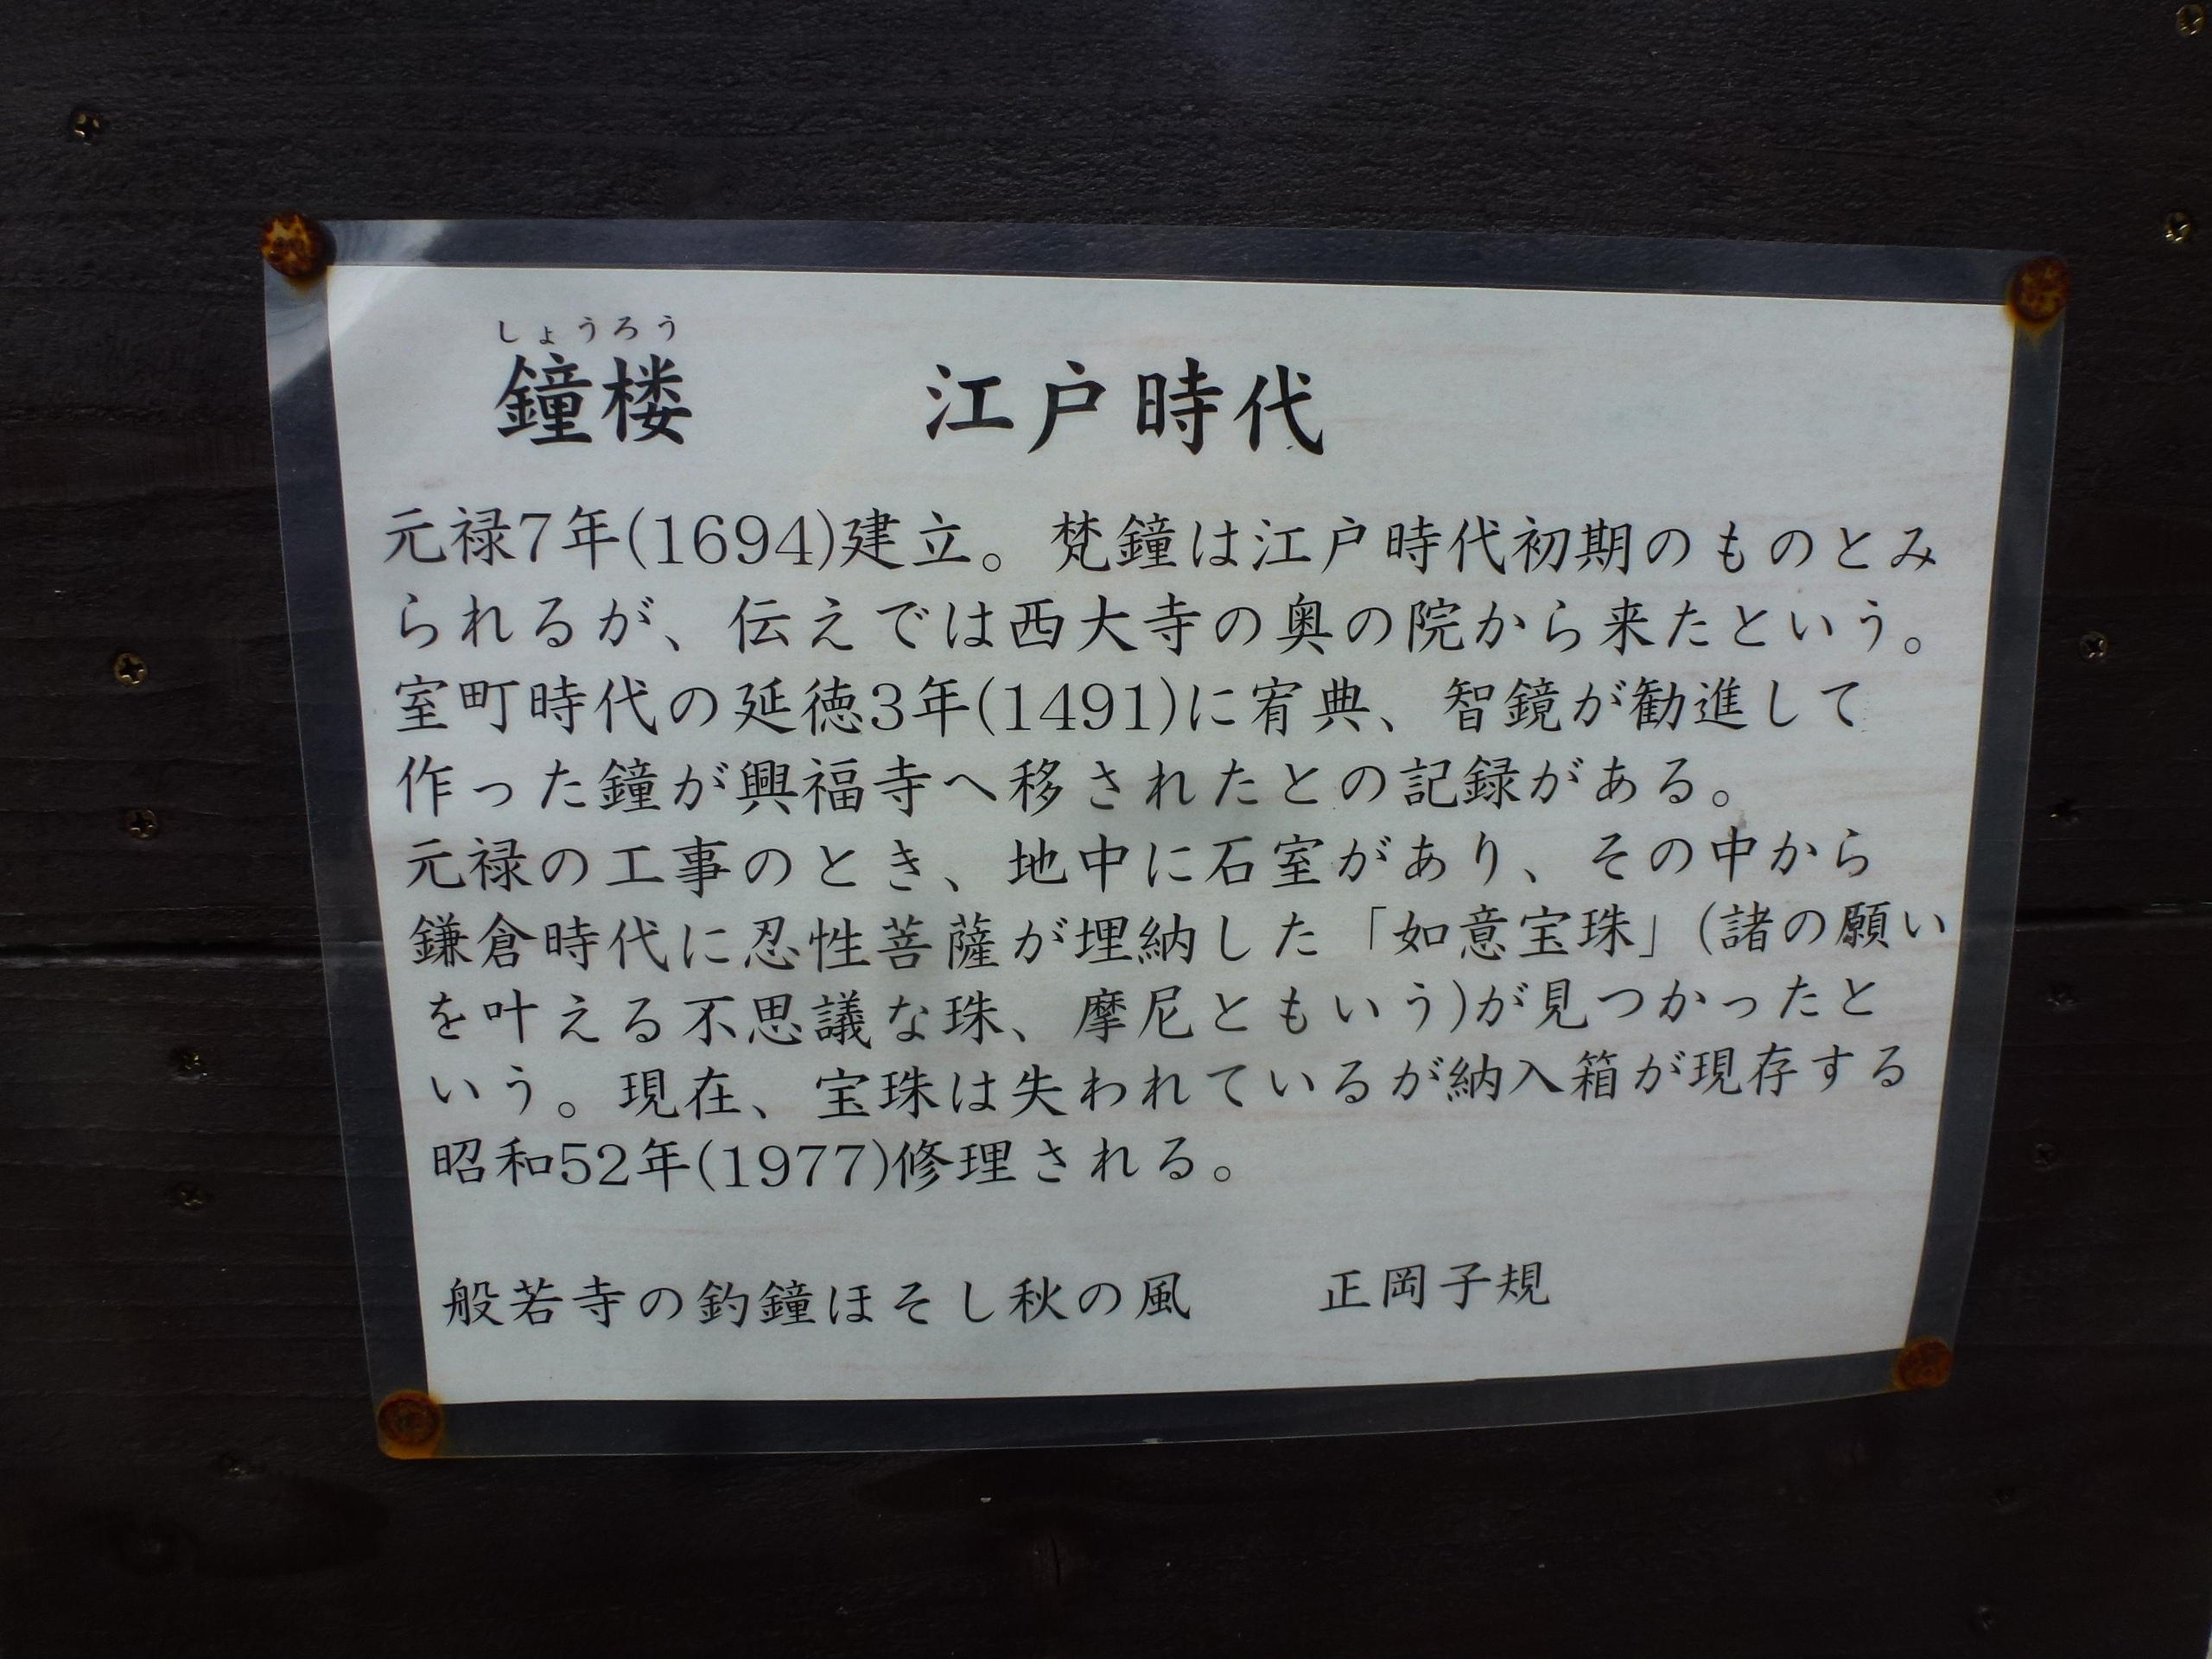 しょうろう
鐘楼 江戸時代
元禄7年(1694)建立。梵鐘は江戸時代初期のものとみ
られるが、伝えでは西大寺の奥の院から来たという。
室町時代の延徳3年(1491)に宥典、智鏡が勧進して
作った鐘が興福寺へ移されたとの記録がある。
元禄の工事のとき、地中に石室があり、その中から
鎌倉時代に忍性菩薩が埋納した「如意宝珠」(諸の願い
を叶える不思議な珠、摩尼ともいう)が見つかったと
いう。現在、宝珠は失われているが納入箱が現存する
昭和52年(1977)修理される。
般若寺の釣鐘ほそし秋の風 正岡子規